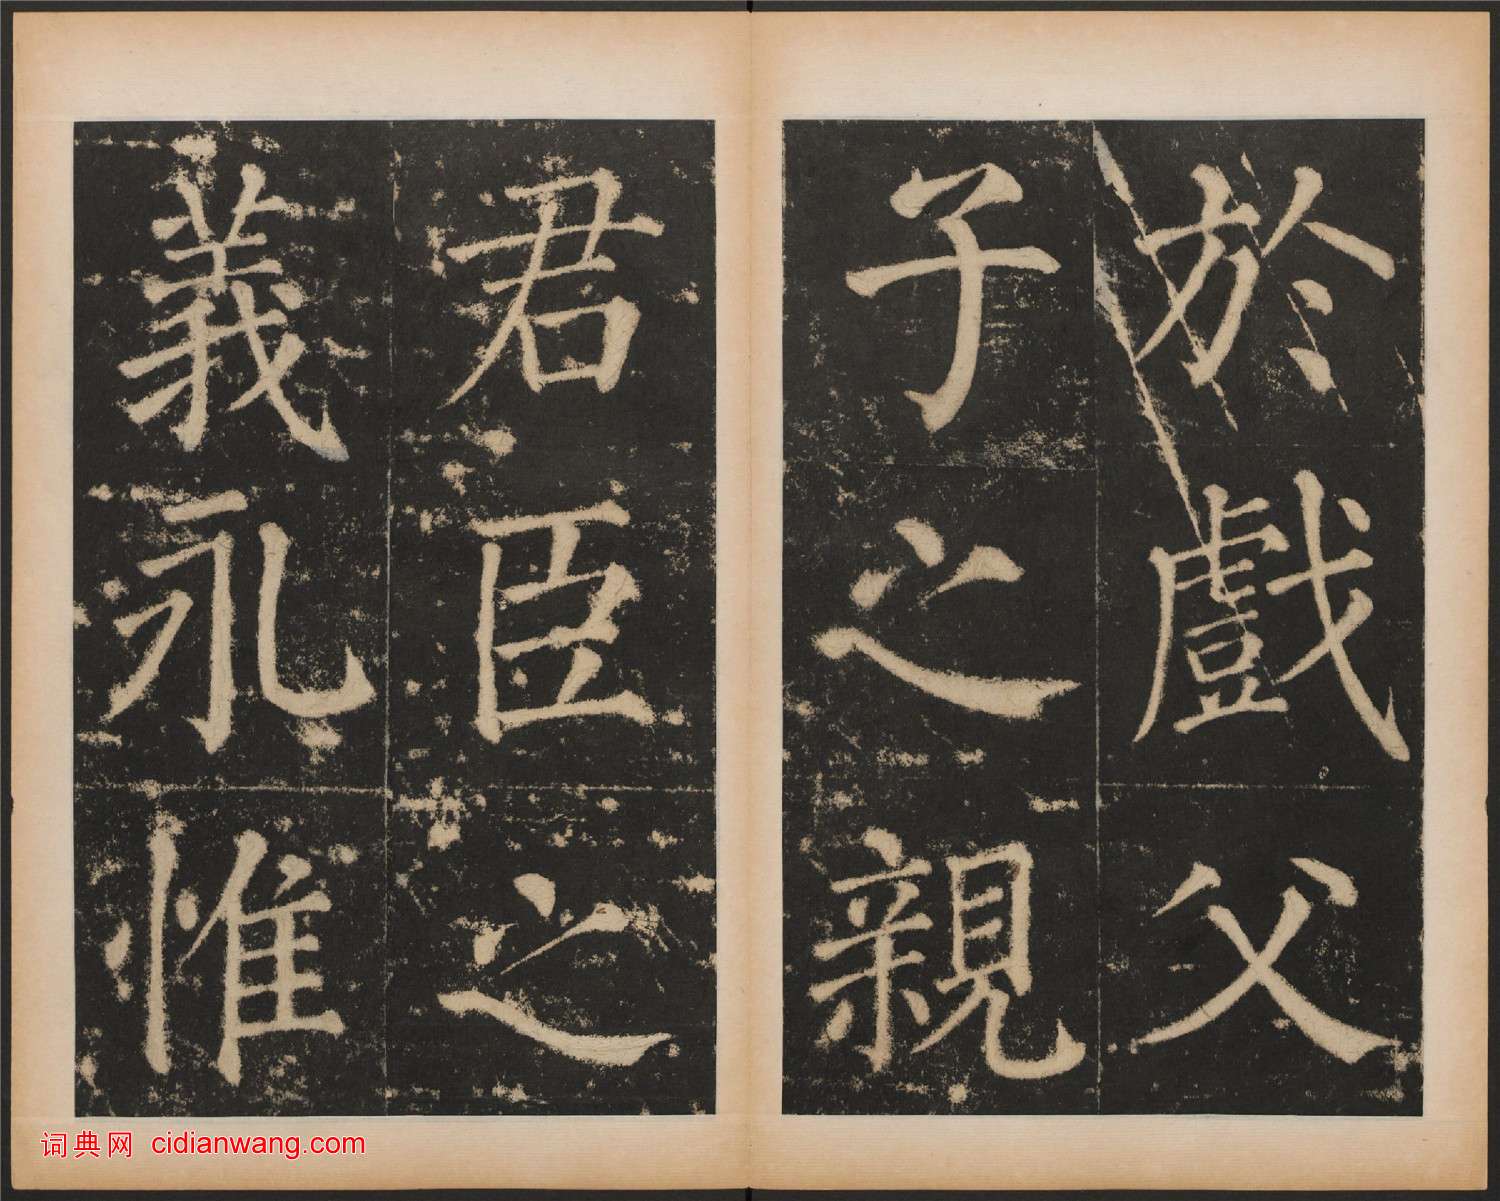 於戲父
子之親
君臣之
義永惟
词典网 cidianwang.com